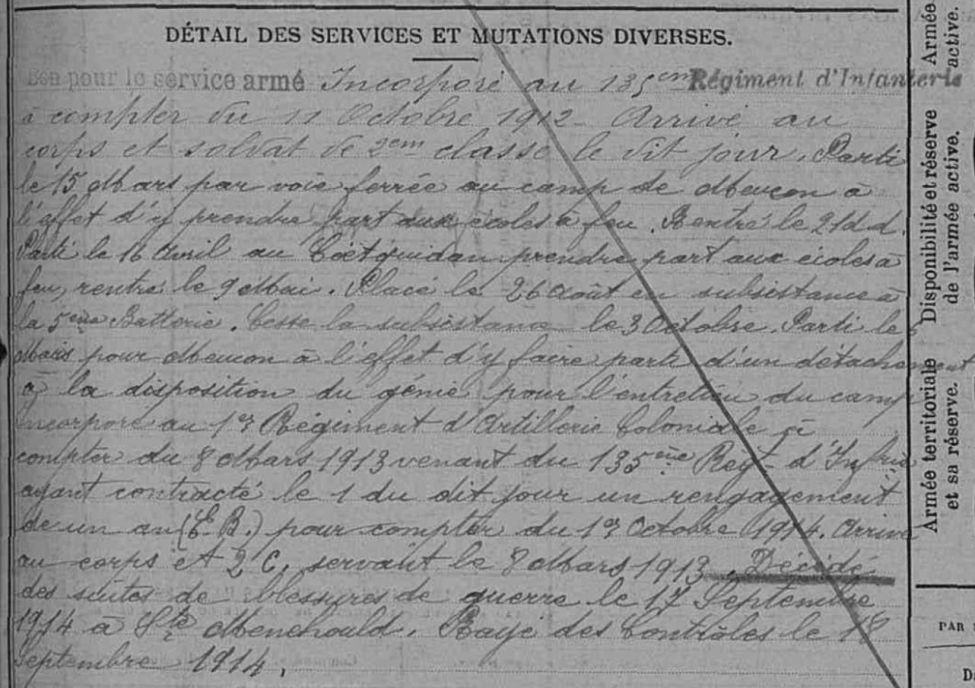 DÉTAIL DES SERVICES ET MUTATIONS DIVERSES.
Bon pour le service armé Incorporé au 135em Régiment d'Infanterie
à compter du 11 Octobre 1912 - Arrivé au
corps et soldat de 2em classe le dit jour. Parti
le 15 Mars par voie ferrée au camp de Meucon à
l'effet d'y prendre part aux écoles à feu. Rentré le 21 d.d.
Parti le 16 Avril au Coëtquidan prendre part aux écoles à
feu, rentré le 9 Mai. Placé le 26 Août en subsistance à
la 5ème Batterie. Cesse la subsistance le 3 Octobre. Parti le 5
Mars pour Meucon à l'effet d'y faire parti d'un détachement
à la disposition du génie pour l'entretien du camp
Incorporé au 1er Régiment d'Artillerie Coloniale à
compter du 8 Mars 1913 venant du 135ème Regt d'Infrie
ayant contracté le 1 du dit jour un rengagement
de un an (E.B.) pour compter du 1er Octobre 1914. Arrivé
au corps et 2 C. servant le 8 Mars 1913. Décédé
des suites de blessures de guerre le 17 Septembre
1914 à Ste Menehould. Rayé des Contrôles le 18
Septembre 1914.
Armée active.
Disponibilité et réserve de l'armée active.
Armée territoriale et sa réserve.
PAR
D